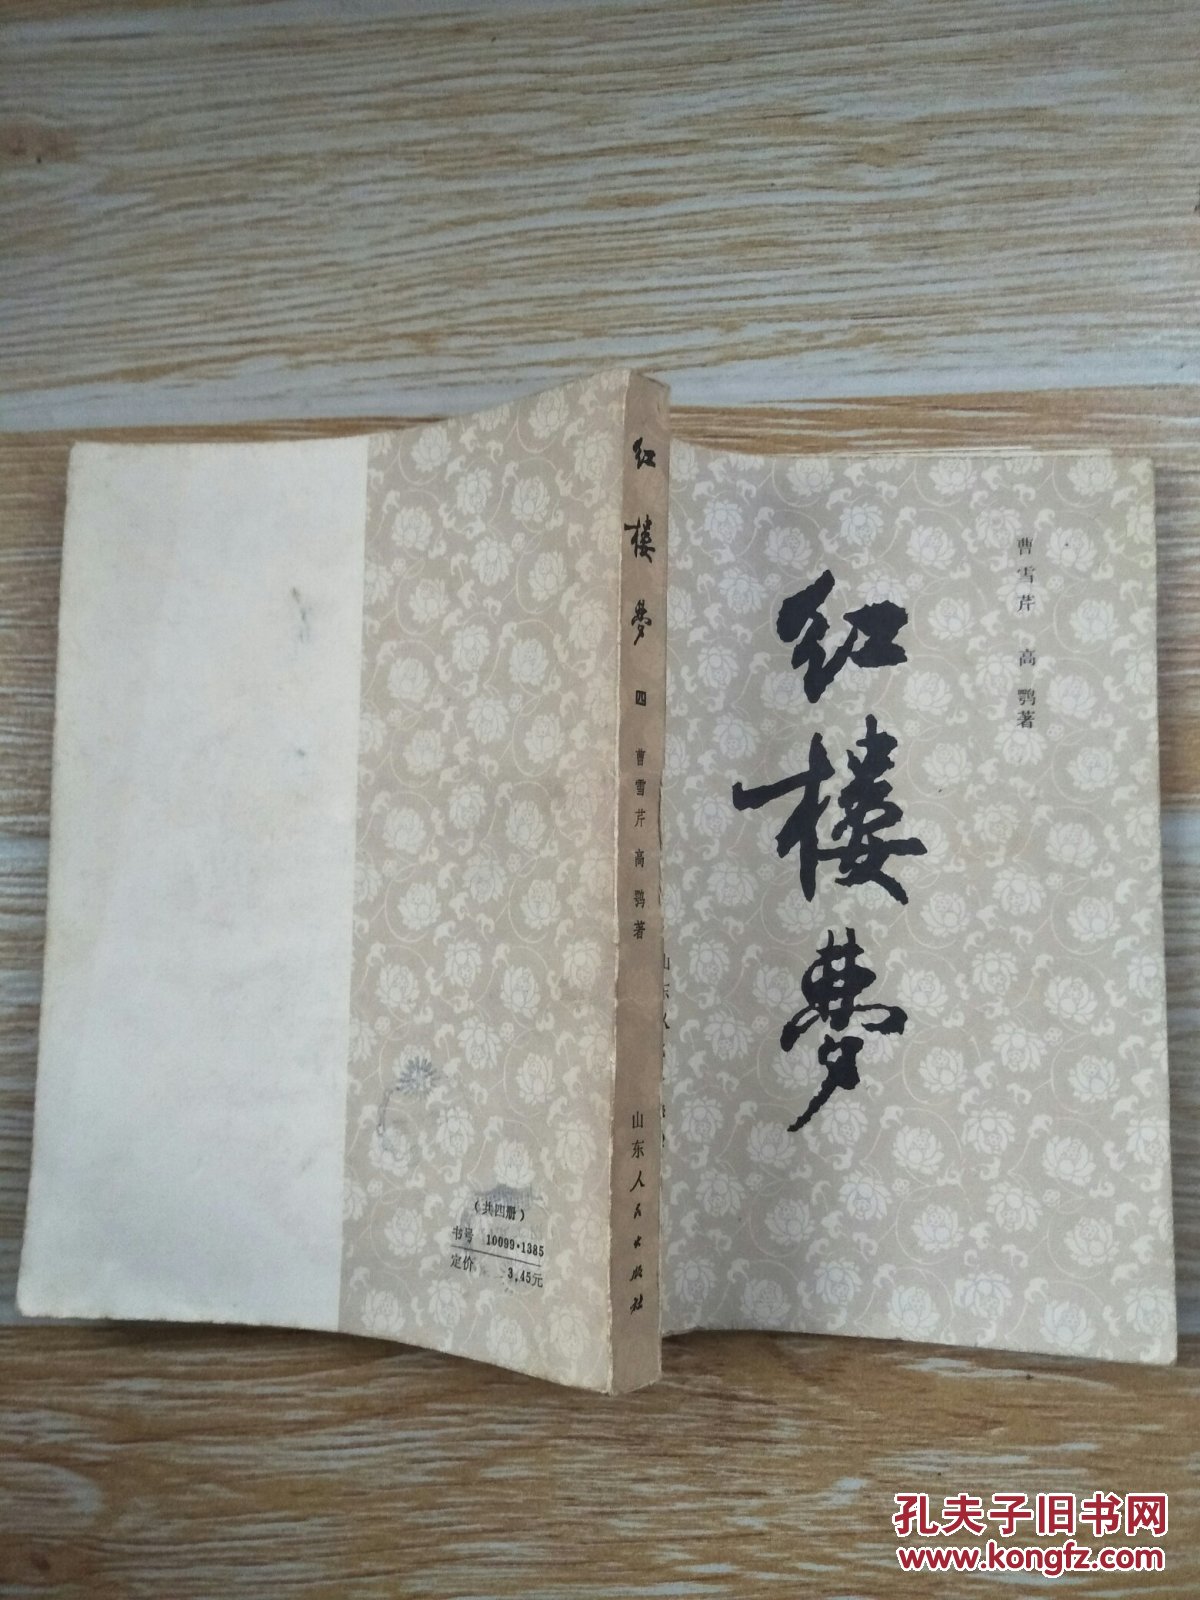 红楼梦
四
曹雪芹 高鹗著
山东人民出版社
红楼梦
曹雪芹 高鹗著
(共四册)
书号 10099·1385
定价 3.45元
孔夫子旧书网
www.kongfz.com